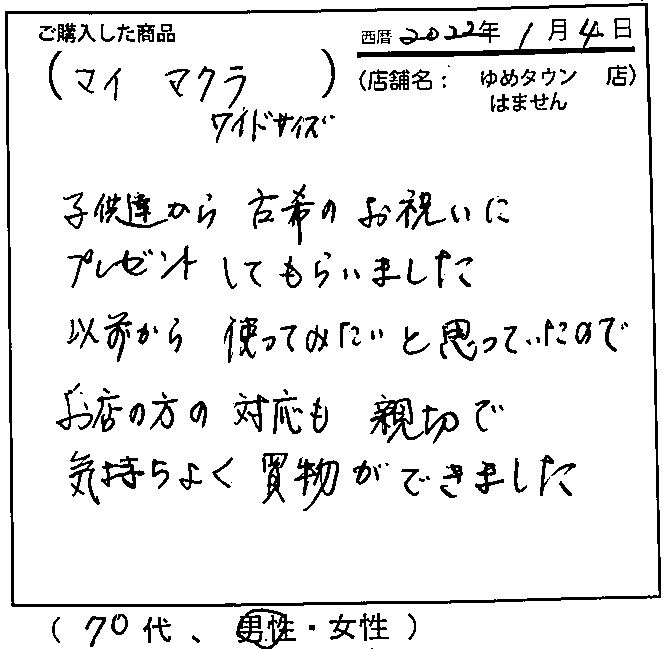 ご購入した商品
西暦 2022年 1月 4日
(マイ マクラ )
ワイドサイズ
(店舗名: ゆめタウン 店)
はません
子供達から 古希の お祝いに
プレゼント してもらいました
以前から 使ってみたい と思っていたので
お店の方の 対応も 親切で
気持ちよく 買物ができました
( 70代、 男性・女性 )